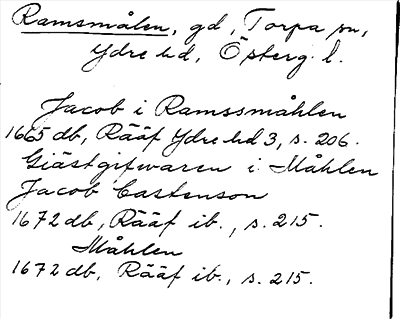 Ramsmålen, gd, Torpa sn,
Ydre hd, Östergl.
Jacob i Ramssmåhlen
1665 db, Rääf Ydre hd 3, s. 206.
Giästgifwaren i Måhlen
Jacob Castenson
1672 db, Rääf ib., s. 215.
Måhlen
1672 db, Rääf ib., s. 215.